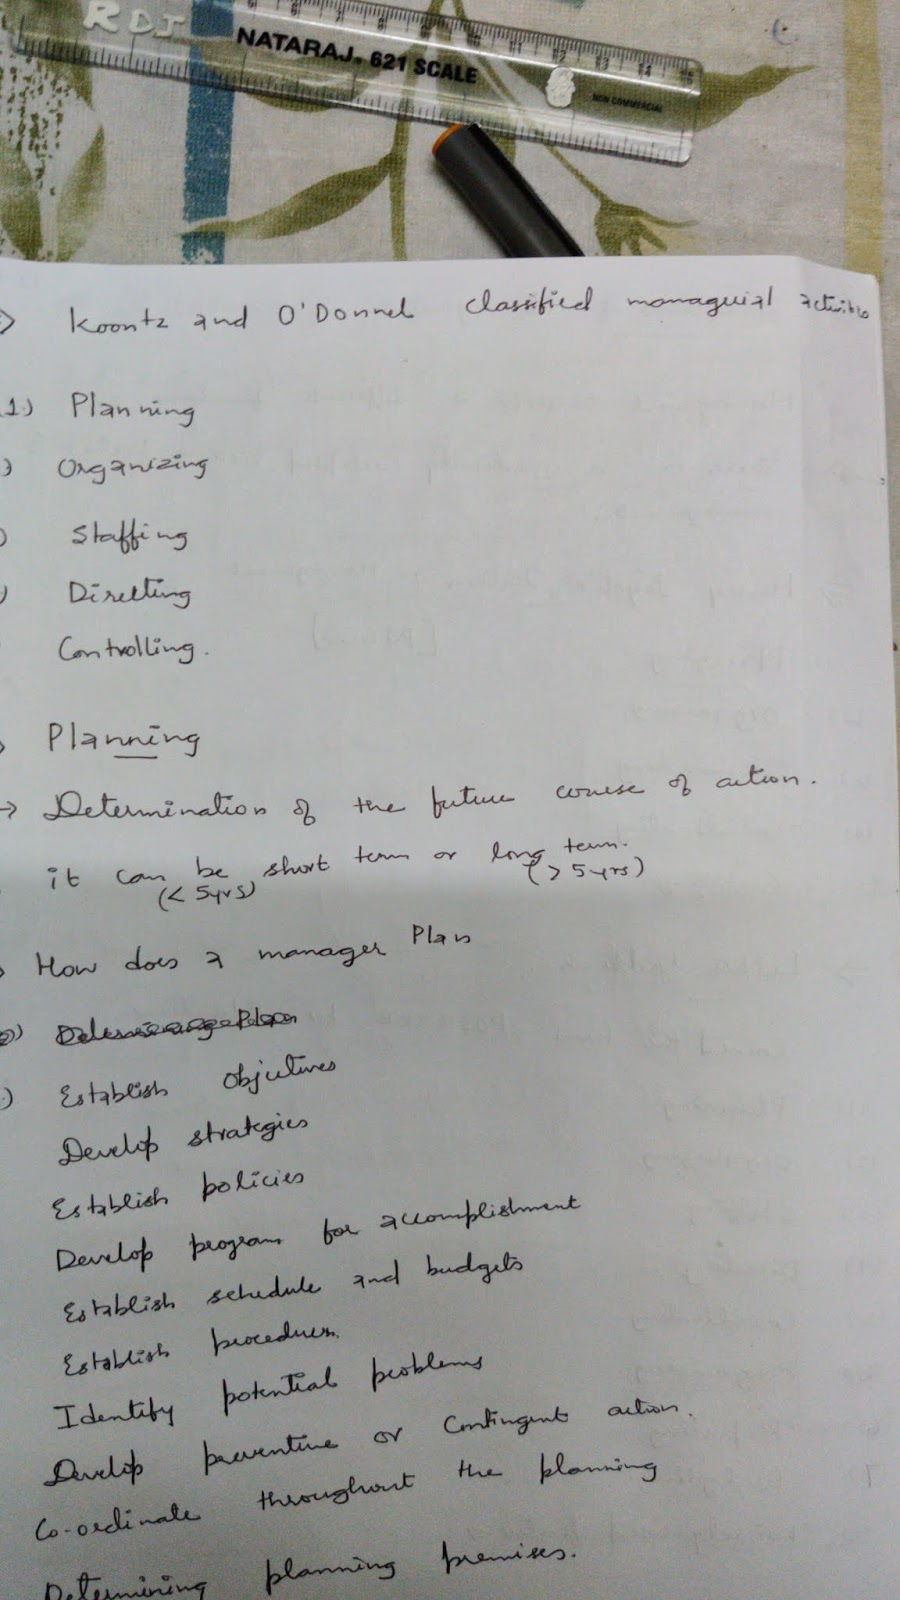 RDJ
NATARAJ® 621 SCALE
NON COMMERCIAL
Koontz and O'Donnel classified managerial
1.) Planning
) Organizing
) Staffing
) Directing
Controlling.
Planning
→ Determination of the future course of action.
it can be short term or long term.
(< 5yrs) (> 5yrs)
How does a manager Plan
.) Establish objectives
Develop strategies
Establish policies
Develop program for accomplishment
Establish schedule and budgets
Establish procedures.
Identify potential problems
Develop preventive or contingent action.
Co-ordinate throughout the planning
Determining planning premises.